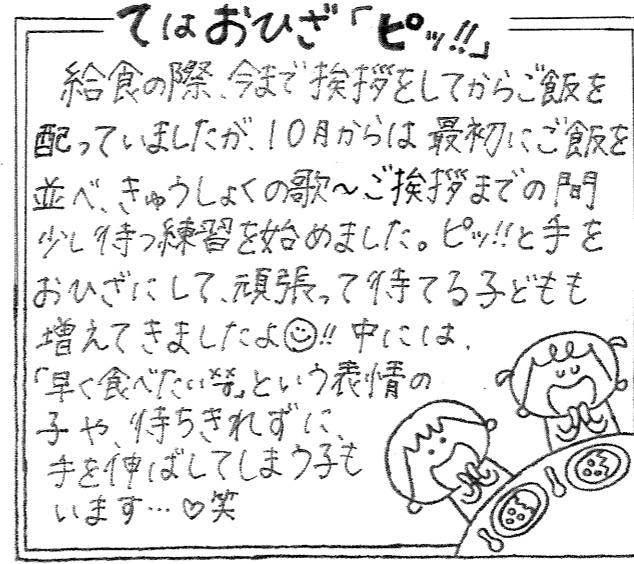 てはおひざ「ピッ!!」
給食の際、今まで挨拶をしてからご飯を
配っていましたが、10月からは最初にご飯を
並べ、きゅうしょくの歌〜ご挨拶までの間
少し待つ練習を始めました。ピッ!!と手を
おひざにして、頑張って待てる子どもも
増えてきましたよ☺!! 中には、
「早く食べたい💢」という表情の
子や、待ちきれずに、
手を伸ばしてしまう子も
います…♡笑